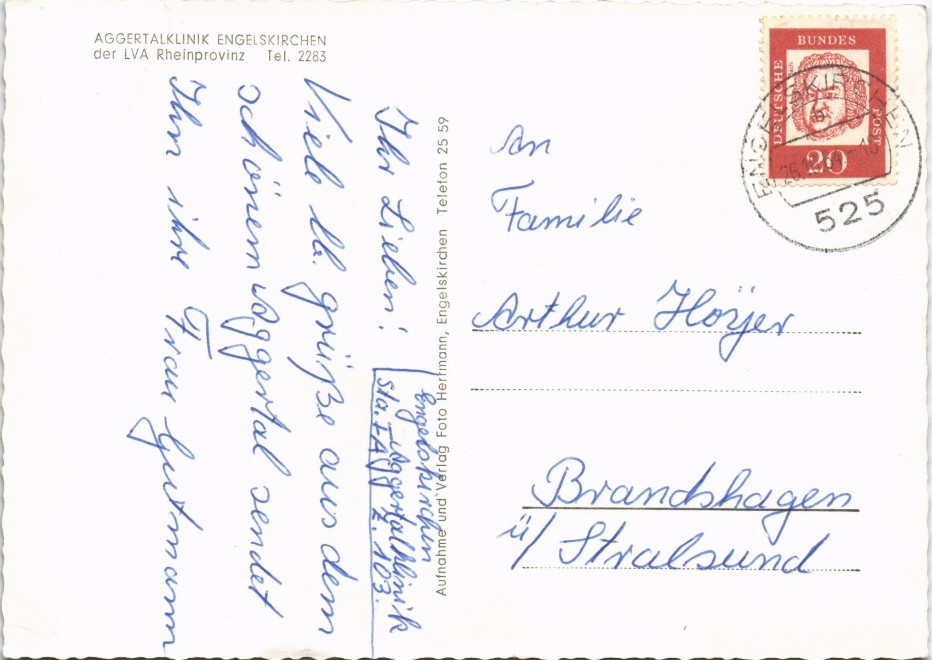 AGGERTALKLINIK ENGELSKIRCHEN
der LVA Rheinprovinz Tel. 2283
Ihr Lieben!
Viele lb. grüße aus dem
schönem Aggertal sendet
Ihn ihre Frau Gutmann
Engelskirchen
Aggertalklinik
Sta. IA Z. 103.
Aufnahme und Verlag Foto Herrmann, Engelskirchen Telefon 25 59
DEUTSCHE
BUNDES
POST
20
ENGELSKIRCHEN
525
An
Familie
Arthur Höyer
Brandshagen
ü/ Stralsund